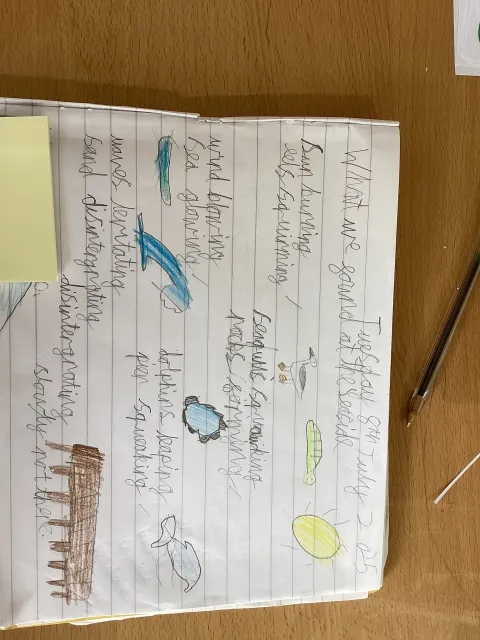 Tuesday 8th July
What we sound at the seaside
Sun burning
eels squirming,
Seagulls squawking
rocks forming,
wind blowing
Sea glowing,
dolphins leaping
pen squeaking,
waves levitating
sand disintergrating
disintergrating
slowly not there.